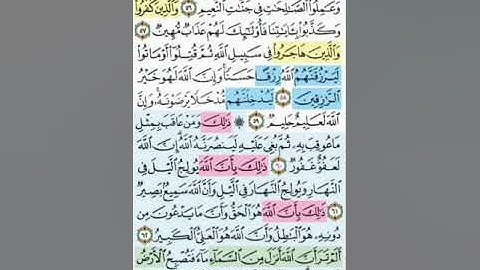 وَعَمِلُوا۟ ٱلصَّـٰلِحَـٰتِ فِى جَنَّـٰتِ ٱلنَّعِيمِ ٥٦ وَٱلَّذِينَ كَفَرُوا۟
وَكَذَّبُوا۟ بِـَٔايَـٰتِنَا فَأُو۟لَـٰٓئِكَ لَهُمْ عَذَابٌ مُّهِينٌ ٥٧
وَٱلَّذِينَ هَاجَرُوا۟ فِى سَبِيلِ ٱللَّهِ ثُمَّ قُتِلُوٓا۟ أَوْ مَاتُوا۟
لَيَرْزُقَنَّهُمُ ٱللَّهُ رِزْقًا حَسَنًا وَإِنَّ ٱللَّهَ لَهُوَ خَيْرُ
ٱلرَّٰزِقِينَ ٥٨ لَيُدْخِلَنَّهُم مُّدْخَلًا يَرْضَوْنَهُۥ وَإِنَّ
ٱللَّهَ لَعَلِيمٌ حَلِيمٌ ٥٩ ۞ ذَٰلِكَ وَمَنْ عَاقَبَ بِمِثْلِ
مَا عُوقِبَ بِهِۦ ثُمَّ بُغِىَ عَلَيْهِ لَيَنصُرَنَّهُ ٱللَّهُ إِنَّ ٱللَّهَ
لَعَفُوٌّ غَفُورٌ ٦٠ ذَٰلِكَ بِأَنَّ ٱللَّهَ يُولِجُ ٱلَّيْلَ فِى
ٱلنَّهَارِ وَيُولِجُ ٱلنَّهَارَ فِى ٱلَّيْلِ وَأَنَّ ٱللَّهَ سَمِيعٌۢ بَصِيرٌ
٦١ ذَٰلِكَ بِأَنَّ ٱللَّهَ هُوَ ٱلْحَقُّ وَأَنَّ مَا يَدْعُونَ مِن
دُونِهِۦ هُوَ ٱلْبَـٰطِلُ وَأَنَّ ٱللَّهَ هُوَ ٱلْعَلِىُّ ٱلْكَبِيرُ ٦٢
أَلَمْ تَرَ أَنَّ ٱللَّهَ أَنزَلَ مِنَ ٱلسَّمَآءِ مَآءً فَتُصْبِحُ ٱلْأَرْضُ